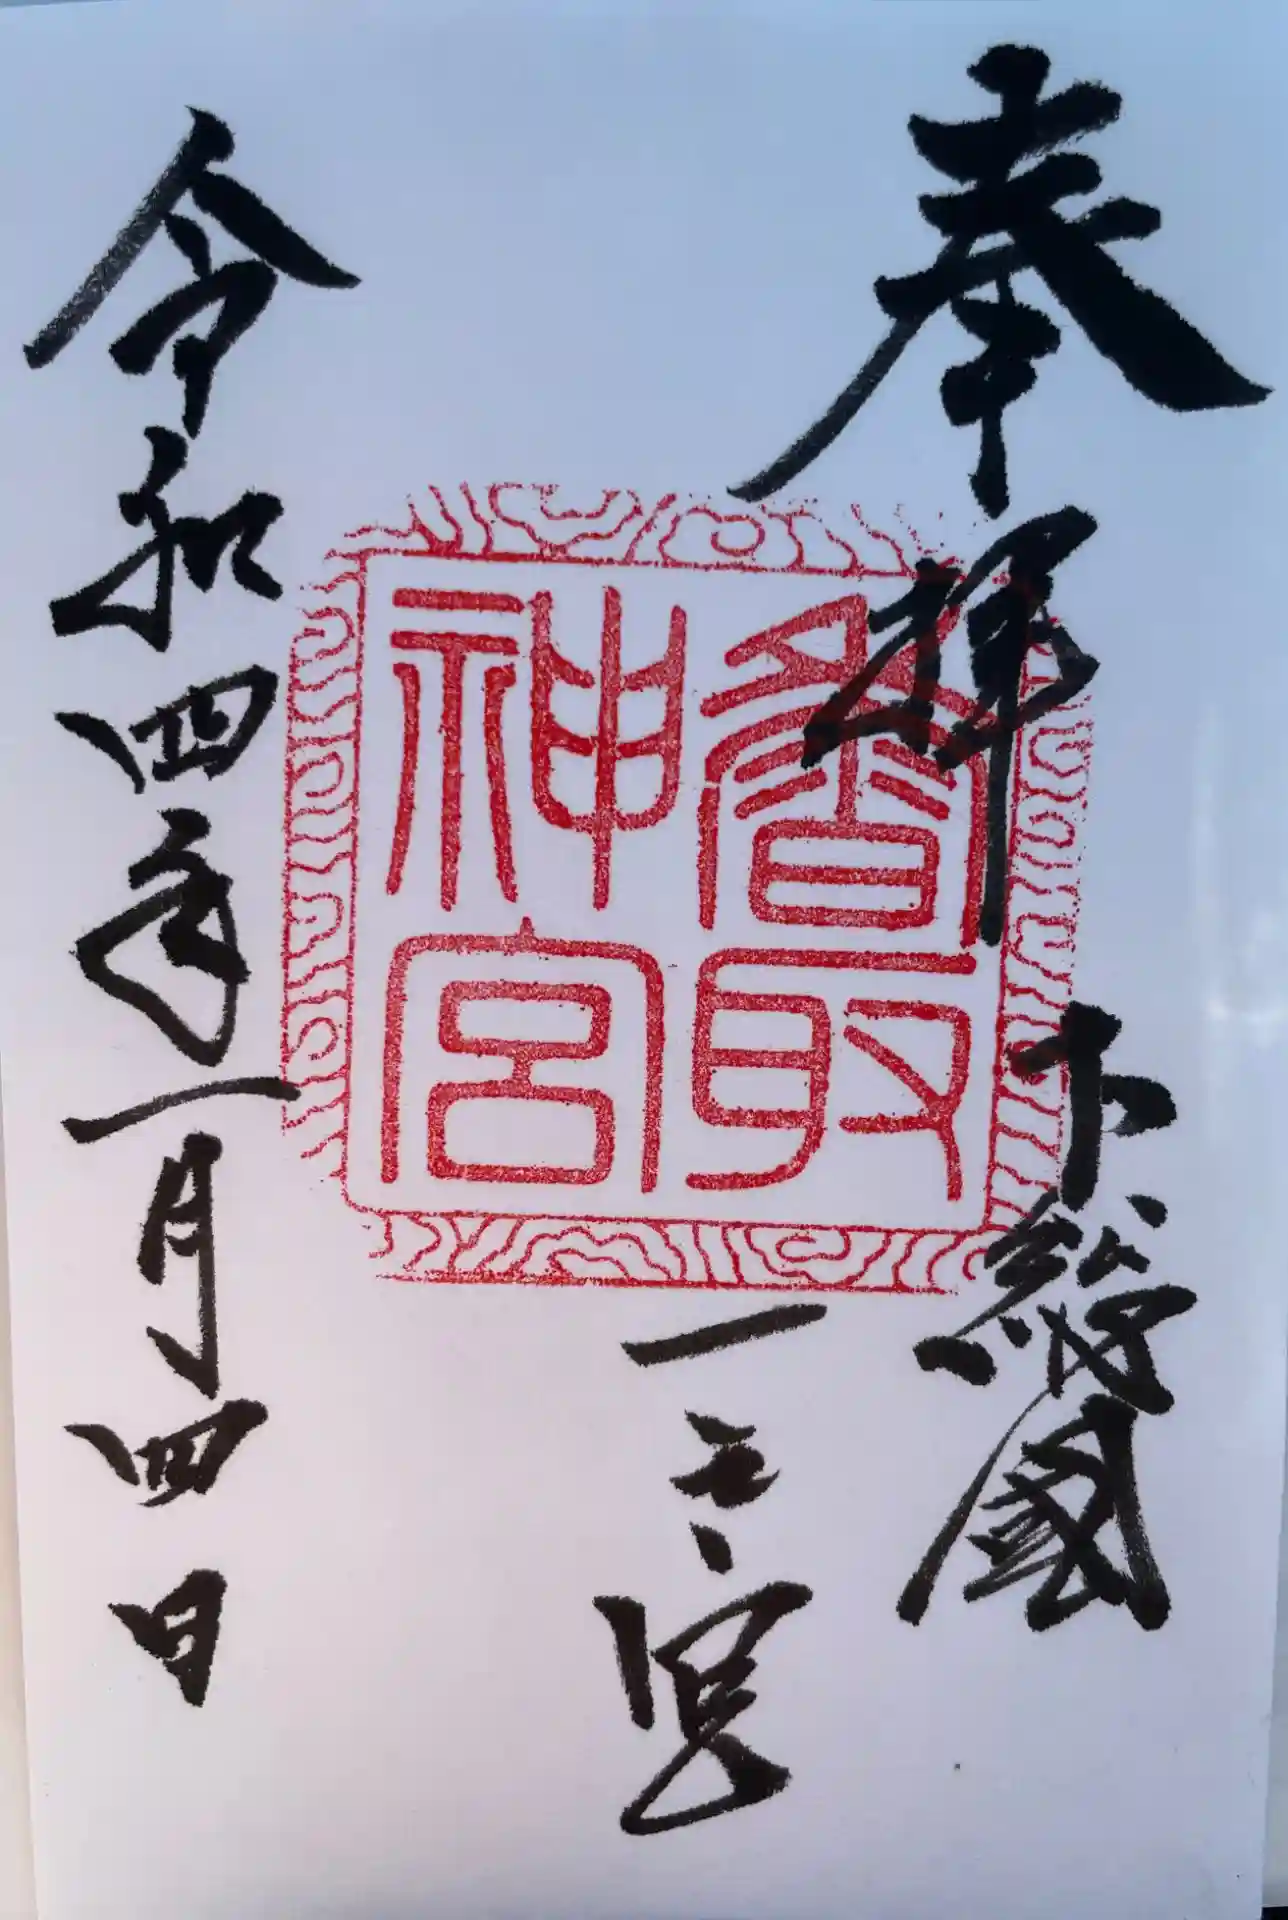 奉拝
下総國
一之宮
香取
神宮
令和四年一月四日